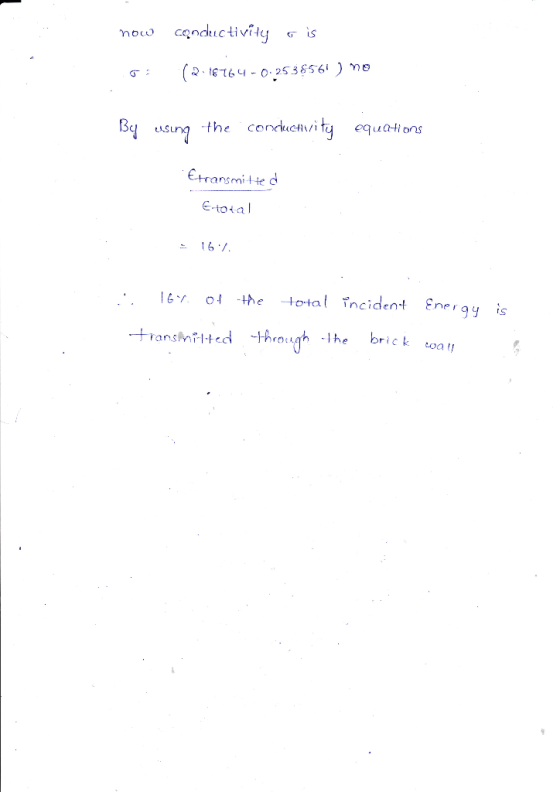 now conductivity σ is
σ : (2.18764 - 0.253656i) n0
By using the conductivity equations
Etransmitted
Etotal
= 16%
∴ 16% of the total incident Energy is
transmitted through the brick wall